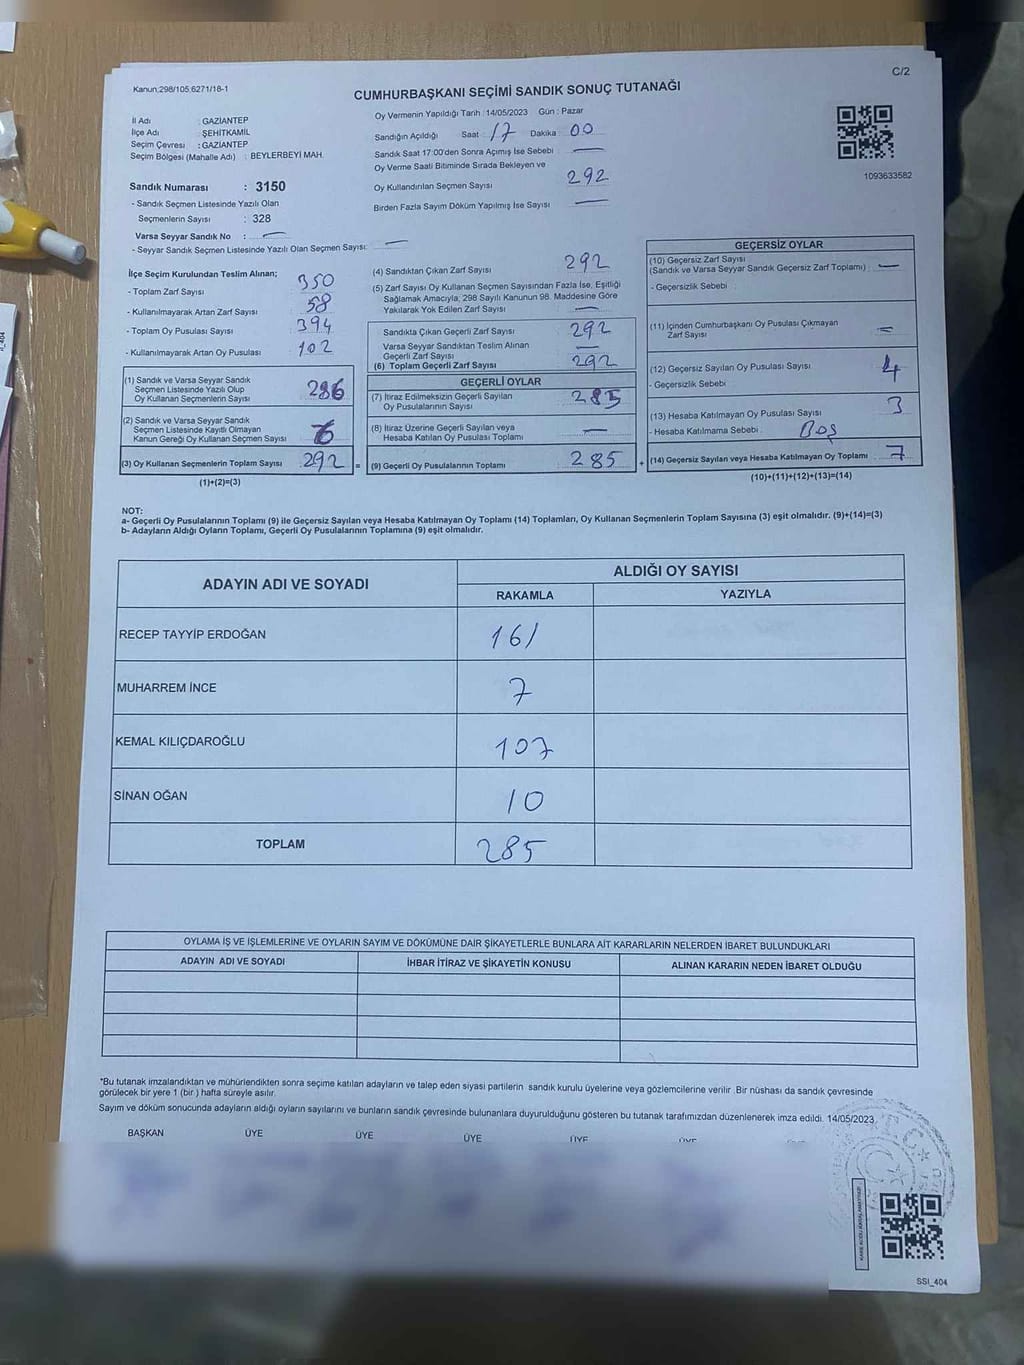 C/2
Kanun.298/105,6271/18-1
CUMHURBAŞKANI SEÇİMİ SANDIK SONUÇ TUTANAĞI
İl Adı : GAZİANTEP
İlçe Adı : ŞEHİTKAMİL
Seçim Çevresi : GAZİANTEP
Seçim Bölgesi (Mahalle Adı) : BEYLERBEYİ MAH.
Sandık Numarası : 3150
- Sandık Seçmen Listesinde Yazılı Olan
Seçmenlerin Sayısı : 328
Varsa Seyyar Sandık No : —
- Seyyar Sandık Seçmen Listesinde Yazılı Olan Seçmen Sayısı: —
Oy Vermenin Yapıldığı Tarih : 14/05/2023 Gün : Pazar
Sandığın Açıldığı Saat : 17 Dakika : 00
Sandık Saat 17:00'den Sonra Açımış İse Sebebi : —
Oy Verme Saati Bitiminde Sırada Bekleyen ve
Oy Kullandırılan Seçmen Sayısı 292
Birden Fazla Sayım Döküm Yapılmış İse Sayısı —
1093633582
İlçe Seçim Kurulundan Teslim Alınan;
- Toplam Zarf Sayısı 350
- Kullanılmayarak Artan Zarf Sayısı 58
- Toplam Oy Pusulası Sayısı 394
- Kullanılmayarak Artan Oy Pusulası 102
(1) Sandık ve Varsa Seyyar Sandık
Seçmen Listesinde Yazılı Olup
Oy Kullanan Seçmenlerin Sayısı 286
(2) Sandık ve Varsa Seyyar Sandık
Seçmen Listesinde Kayıtlı Olmayan
Kanun Gereği Oy Kullanan Seçmen Sayısı 6
(3) Oy Kullanan Seçmenlerin Toplam Sayısı 292 =
(1)+(2)=(3)
(4) Sandıktan Çıkan Zarf Sayısı 292
(5) Zarf Sayısı Oy Kullanan Seçmen Sayısından Fazla İse, Eşitliği
Sağlamak Amacıyla, 298 Sayılı Kanunun 98. Maddesine Göre
Yakılarak Yok Edilen Zarf Sayısı —
Sandıkta Çıkan Geçerli Zarf Sayısı 292
Varsa Seyyar Sandıktan Teslim Alınan
Geçerli Zarf Sayısı —
(6) Toplam Geçerli Zarf Sayısı 292
GEÇERLİ OYLAR
(7) İtiraz Edilmeksizin Geçerli Sayılan
Oy Pusulalarının Sayısı 285
(8) İtiraz Üzerine Geçerli Sayılan veya
Hesaba Katılan Oy Pusulası Toplamı —
(9) Geçerli Oy Pusulalarının Toplamı 285 +
GEÇERSİZ OYLAR
(10) Geçersiz Zarf Sayısı
(Sandık ve Varsa Seyyar Sandık Geçersiz Zarf Toplamı) —
- Geçersizlik Sebebi :
(11) İçinden Cumhurbaşkanı Oy Pusulası Çıkmayan
Zarf Sayısı —
(12) Geçersiz Sayılan Oy Pusulası Sayısı 4
- Geçersizlik Sebebi :
(13) Hesaba Katılmayan Oy Pusulası Sayısı 3
- Hesaba Katılmama Sebebi : Boş
(14) Geçersiz Sayılan veya Hesaba Katılmayan Oy Toplamı 7
(10)+(11)+(12)+(13)=(14)
NOT:
a- Geçerli Oy Pusulalarının Toplamı (9) ile Geçersiz Sayılan veya Hesaba Katılmayan Oy Toplamı (14) Toplamları, Oy Kullanan Seçmenlerin Toplam Sayısına (3) eşit olmalıdır. (9)+(14)=(3)
b- Adayların Aldığı Oyların Toplamı, Geçerli Oy Pusulalarının Toplamına (9) eşit olmalıdır.
ADAYIN ADI VE SOYADI ALDIĞI OY SAYISI
RAKAMLA YAZIYLA
RECEP TAYYİP ERDOĞAN 161
MUHARREM İNCE 7
KEMAL KILIÇDAROĞLU 107
SİNAN OĞAN 10
TOPLAM 285
OYLAMA İŞ VE İŞLEMLERİNE VE OYLARIN SAYIM VE DÖKÜMÜNE DAİR ŞİKAYETLERLE BUNLARA AİT KARARLARIN NELERDEN İBARET BULUNDUKLARI
ADAYIN ADI VE SOYADI İHBAR İTİRAZ VE ŞİKAYETİN KONUSU ALINAN KARARIN NEDEN İBARET OLDUĞU
*Bu tutanak imzalandıktan ve mühürlendikten sonra seçime katılan adayların ve talep eden siyasi partilerin sandık kurulu üyelerine veya gözlemcilerine verilir .Bir nüshası da sandık çevresinde
görülecek bir yere 1 (bir ) hafta süreyle asılır.
Sayım ve döküm sonucunda adayların aldığı oyların sayılarını ve bunların sandık çevresinde bulunanlara duyurulduğunu gösteren bu tutanak tarafımızdan düzenlenerek imza edildi. 14/05/2023
BAŞKAN ÜYE ÜYE ÜYE ÜYE ÜYE
SSI_404